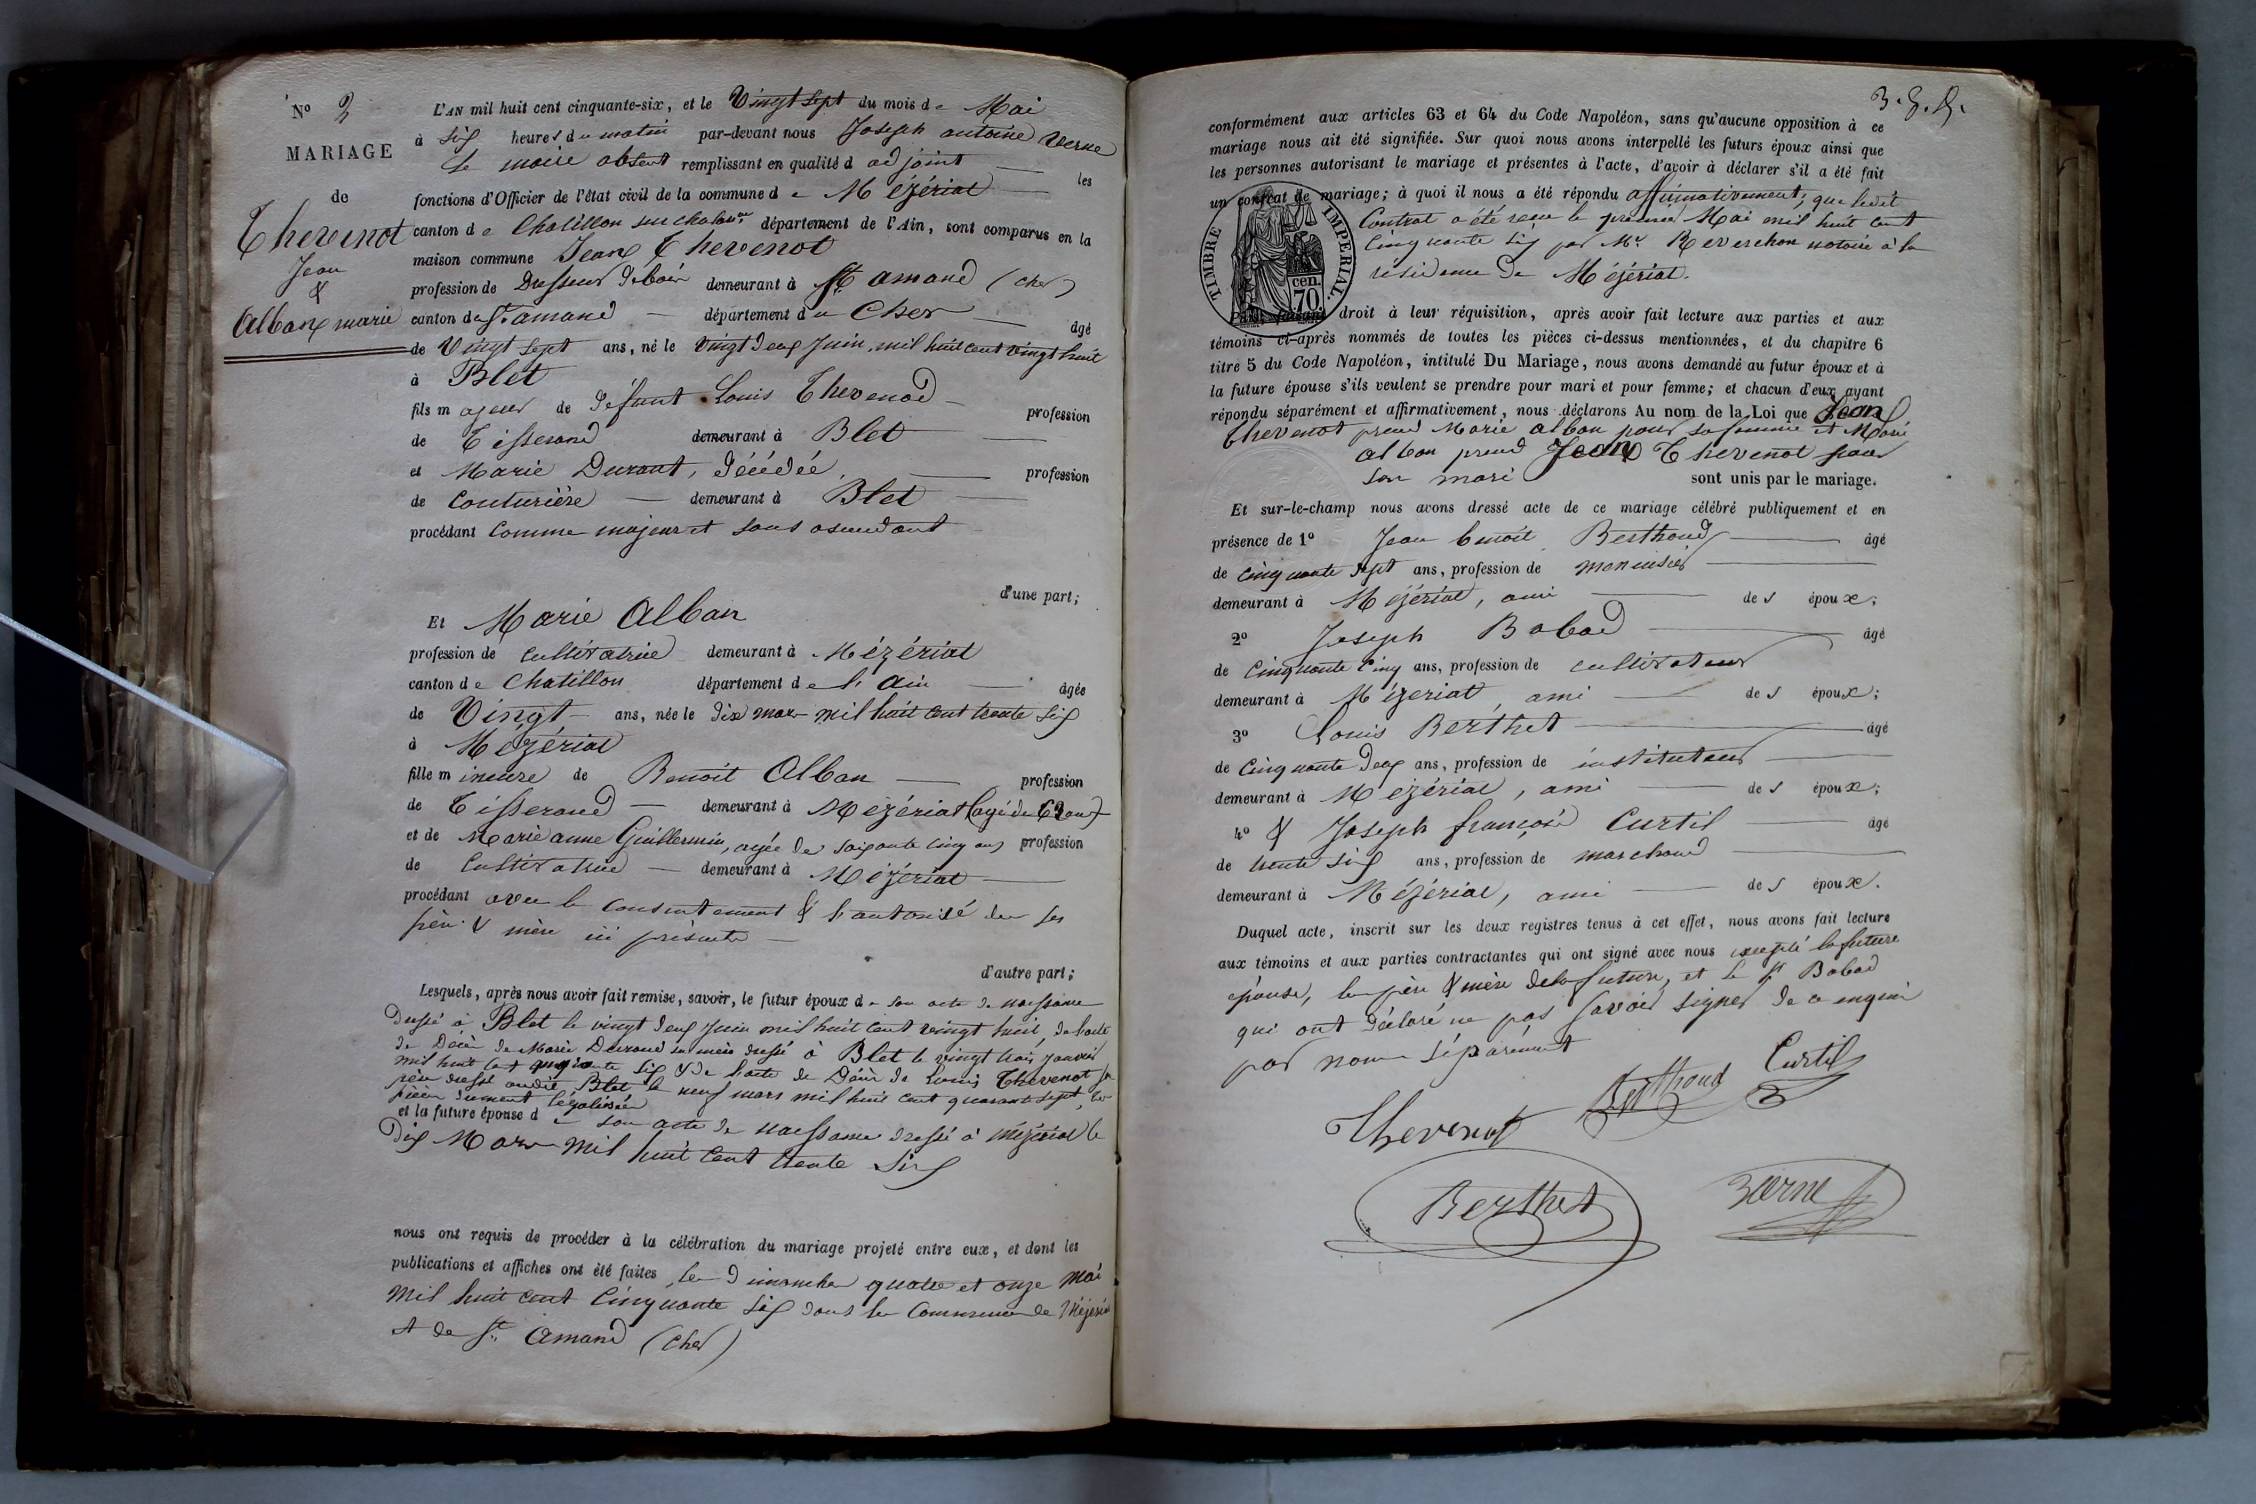 N° 2
MARIAGE
de
Thevenot
Jean
&
Alban marie
L'AN mil huit cent cinquante-six, et le Vingt sept du mois de Mai
à six heures du matin par-devant nous Joseph antoine Verne
le maire absent remplissant en qualité d adjoint les
fonctions d'Officier de l'état civil de la commune de Mézériat
canton de Chatillon sur chalar.ne département de l'Ain, sont comparus en la
maison commune Jean Thevenot
profession de Dresseur de bois demeurant à St amand (cher)
canton de St amand département du Cher âgé
de Vingt sept ans, né le vingt deux Juin mil huit cent vingt huit
à Blet
fils majeur de défunt Louis Thevenod profession
de Tisserand demeurant à Blet
et Marie Durant, décédée, profession
de Couturière demeurant à Blet
procédant comme majeur et sans ascendant
d'une part;
Et Marie Alban
profession de cultivatrice demeurant à Mézériat
canton de Chatillon département de l'ain âgée
de Vingt ans, née le dix mars mil huit cent trente six
à Mézériat
fille mineure de Benoit Alban profession
de Tisserand demeurant à Mézériat (agé de ans)
et de Marie anne Guillermin, agée de soixante cinq ans profession
de Cultivatrice demeurant à Mézériat
procédant avec le consentement & l'autorisé de ses
père & mère ici présents
d'autre part;
Lesquels, après nous avoir fait remise, savoir, le futur époux de son acte de naissance
dressé à Blet le vingt deux juin mil huit cent vingt huit, de l'acte
de Décès de Marie Durand sa mère dressé à Blet le vingt trois janvier
mil huit cent six & de l'acte de Décès de Louis Thevenot son
père dressé audit Blet le neuf mars mil huit cent quarante sept, les
pièces dument légalisées
et la future épouse de son acte de naissance dressé à Mézériat le
Dix Mars mil huit cent trente six
nous ont requis de procéder à la célébration du mariage projeté entre eux, et dont les
publications et affiches ont été faites les Dimanches quatre et onze Mai
mil huit cent cinquante six dans les Communes de Mézériat
et de St Amand (cher)
conformément aux articles 63 et 64 du Code Napoléon, sans qu'aucune opposition à ce
mariage nous ait été signifiée. Sur quoi nous avons interpellé les futurs époux ainsi que
les personnes autorisant le mariage et présentes à l'acte, d'avoir à déclarer s'il a été fait
un contrat de mariage; à quoi il nous a été répondu affirmativement, que ledit
Contrat a été reçu le premier Mai mil huit cent
Cinquante six par Me Reverchon notaire à la
résidence de Mézériat.
TIMBRE IMPERIAL.
70 cen.
faisant droit à leur réquisition, après avoir fait lecture aux parties et aux
témoins ci-après nommés de toutes les pièces ci-dessus mentionnées, et du chapitre 6
titre 5 du Code Napoléon, intitulé Du Mariage, nous avons demandé au futur époux et à
la future épouse s'ils veulent se prendre pour mari et pour femme; et chacun d'eux ayant
répondu séparément et affirmativement, nous déclarons Au nom de la Loi que Jean
Thevenot prend Marie alban pour sa femme et Marie
alban prend Jean Thevenot pour
son mari sont unis par le mariage.
Et sur-le-champ nous avons dressé acte de ce mariage célébré publiquement et en
présence de 1° Jean benoit Berthoud âgé
de cinquante sept ans, profession de menuisier
demeurant à Mézériat, ami des époux;
2° Joseph Babad âgé
de Cinquante cinq ans, profession de cultivateur
demeurant à Mézeriat, ami des époux;
3° Louis Berthet âgé
de Cinquante deux ans, profession de instituteur
demeurant à Mézériat, ami des époux;
4° & Joseph françois Curtil âgé
de trente six ans, profession de marchand
demeurant à Mézériat, ami des époux.
Duquel acte, inscrit sur les deux registres tenus à cet effet, nous avons fait lecture
aux témoins et aux parties contractantes qui ont signé avec nous excepté la future
épouse, les père & mère de la future, et le sr Babad
qui ont déclaré ne pas savoir signer de ce enquis
par nous séparément
Berthoud Curtil
Thevenot
Berthet Verne